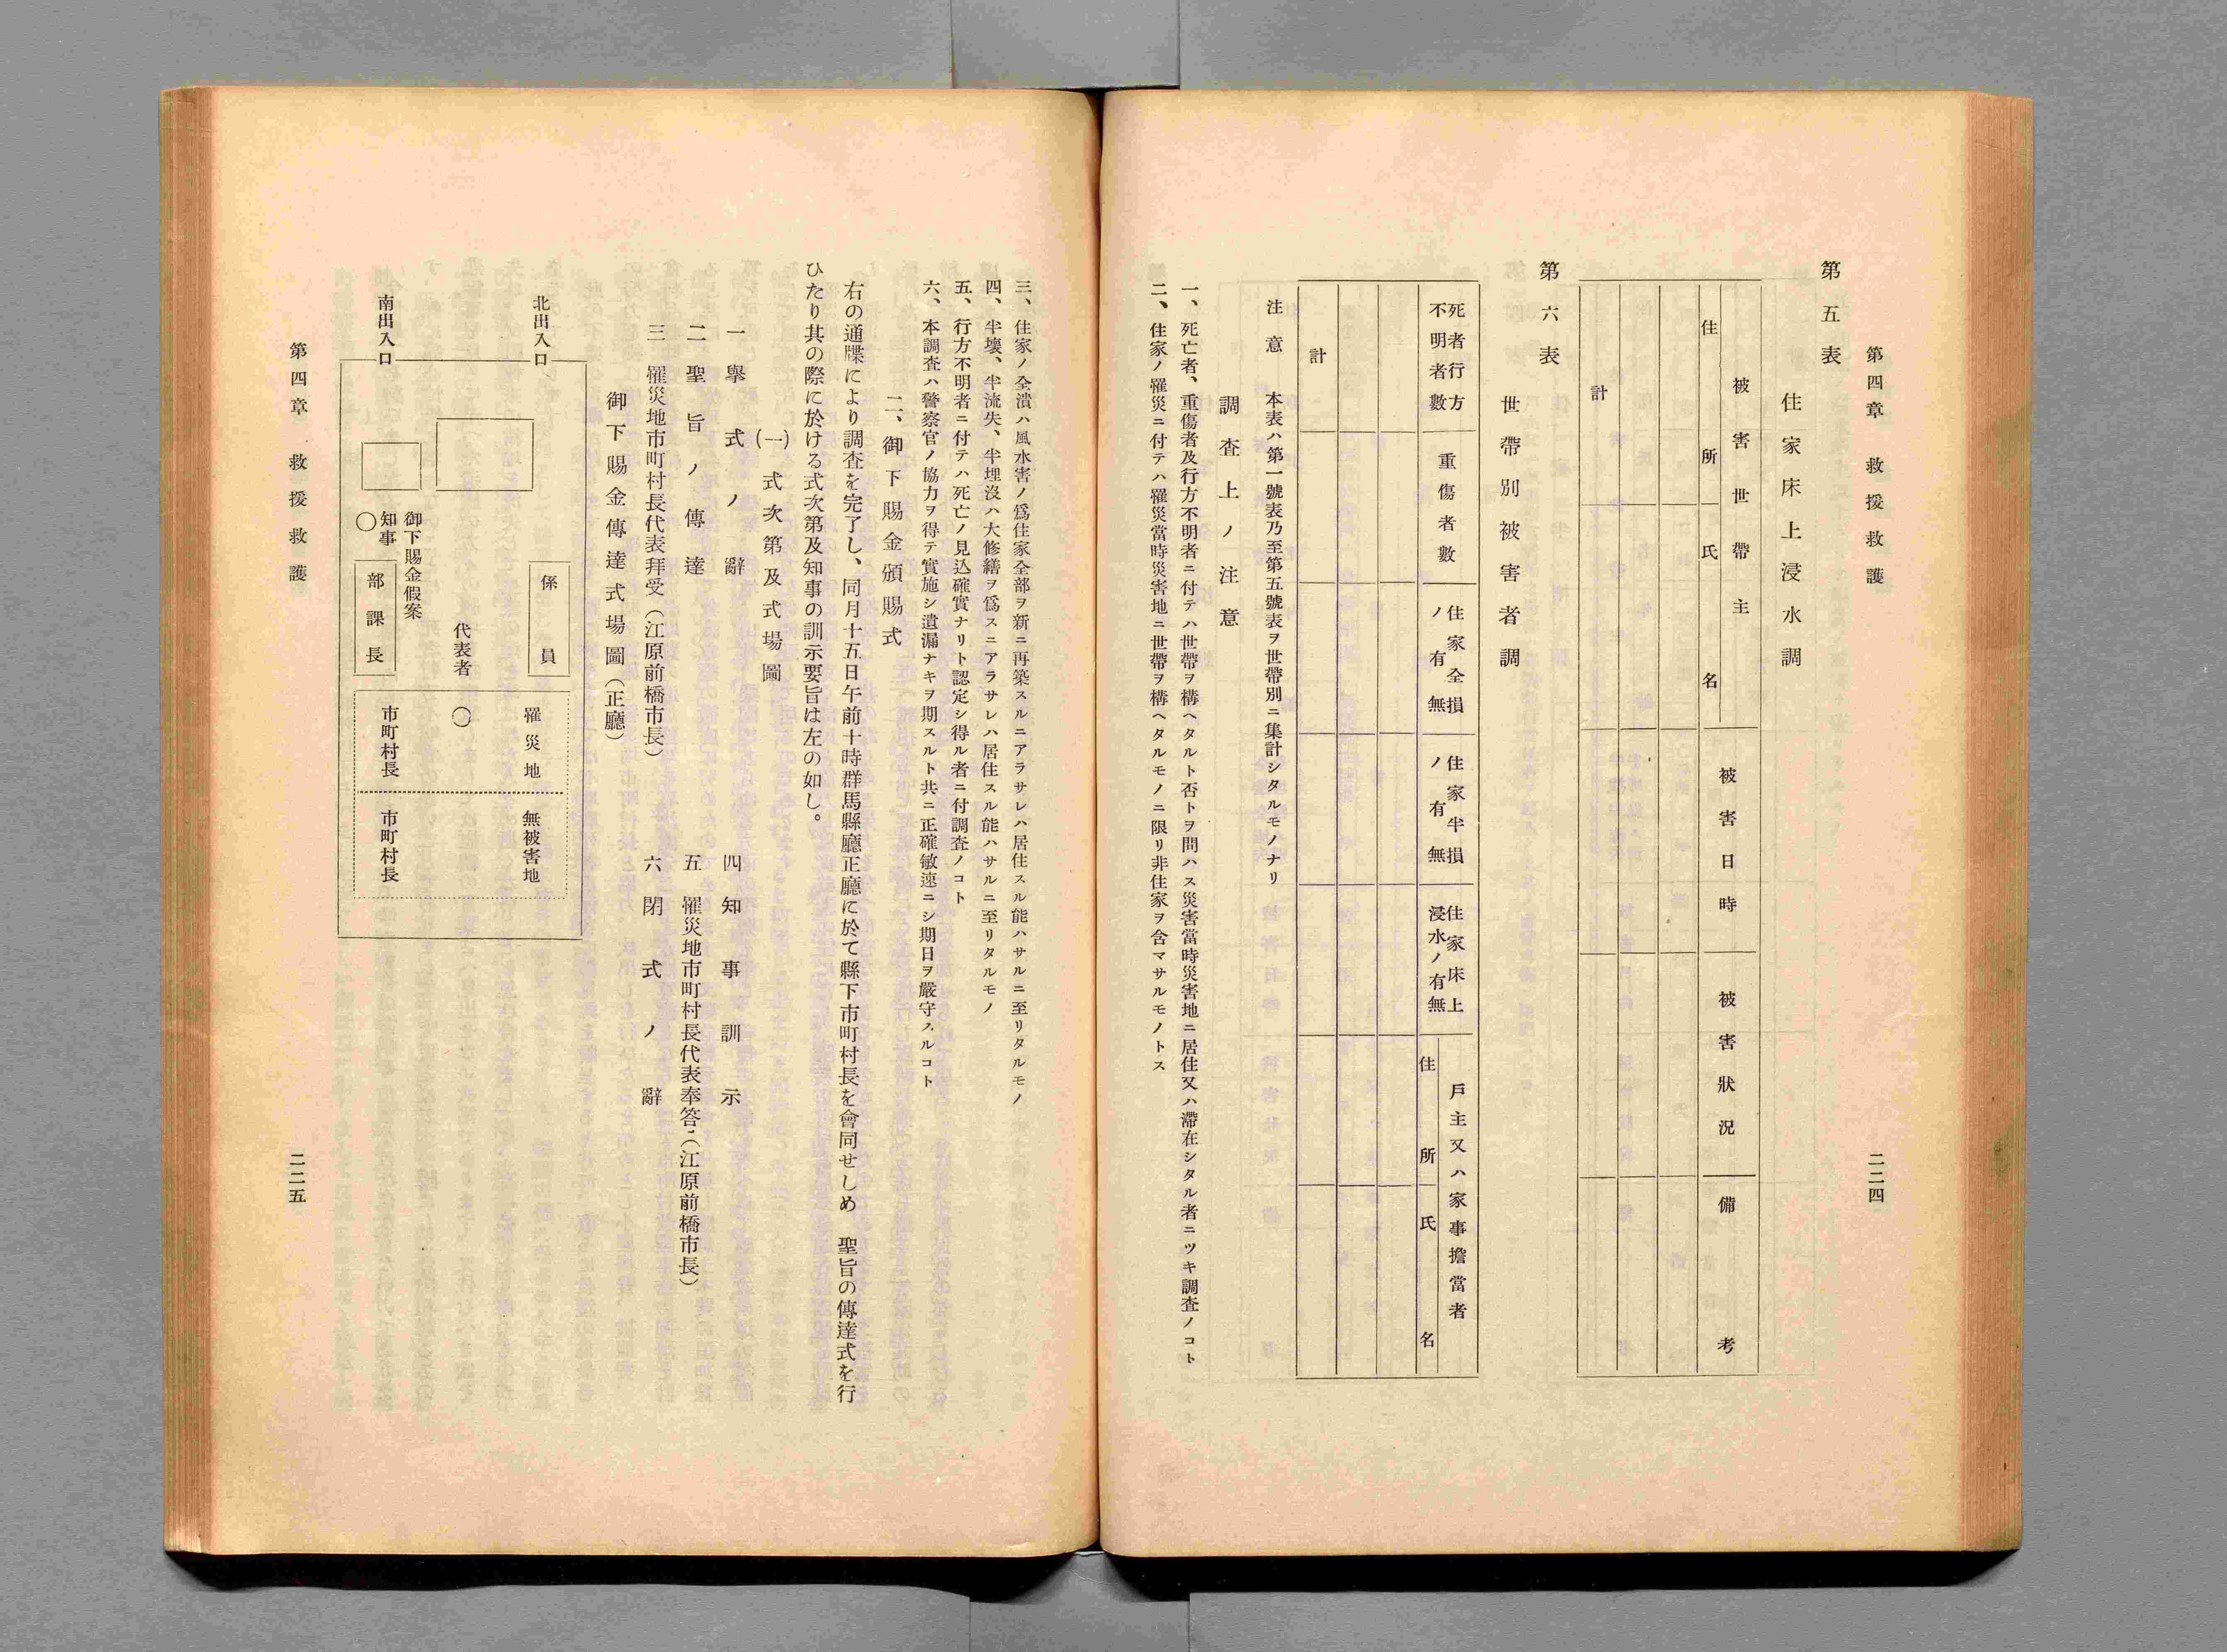 第四章　救援救護
二二四
第五表
住家床上浸水調
被害世帶主
住所
氏名
被害日時
被害狀況
備考
計
第六表
世帶別被害者調
死者行方
不明者數
重傷者數
住家全損
ノ有無
住家半損
ノ有無
住家床上
浸水ノ有無
戶主又ハ家事擔當者
住所
氏名
計
注意　本表ハ第一號表乃至第五號表ヲ世帶別ニ集計シタルモノナリ
調査上ノ注意
一、死亡者、重傷者及行方不明者ニ付テハ世帶ヲ構ヘタルト否トヲ問ハス災害當時災害地ニ居住又ハ滯在シタル者ニツキ調査ノコト
二、住家ノ罹災ニ付テハ罹災當時災害地ニ世帶ヲ構ヘタルモノニ限リ非住家ヲ含マサルモノトス
三、住家ノ全潰ハ風水害ノ爲住家全部ヲ新ニ再築スルニアラサレハ居住スル能ハサルニ至リタルモノ
四、半壞、半流失、半埋沒ハ大修繕ヲ爲スニアラサレハ居住スル能ハサルニ至リタルモノ
五、行方不明者ニ付テハ死亡ノ見込確實ナリト認定シ得ル者ニ付調査ノコト
六、本調査ハ警察官ノ協力ヲ得テ實施シ遺漏ナキヲ期スルト共ニ正確敏速ニシ期日ヲ嚴守スルコト
二、御下賜金頒賜式
右の通牒により調査を完了し、同月十五日午前十時群馬縣廳正廳に於て縣下市町村長を會同せしめ　聖旨の傳達式を行
ひたり其の際に於ける式次第及知事の訓示要旨は左の如し。
(一)　式次第及式場圖
一　擧式ノ辭
二　聖旨ノ傳達
三　罹災地市町村長代表拜受（江原前橋市長）
四　知事訓示
五　罹災地市町村長代表奉答（江原前橋市長）
六　閉式ノ辭
御下賜金傳達式場圖（正廳）
北出入口
南出入口
御下賜金假案
知事
〇
係員
部課長
代表者
〇
罹災地
市町村長
無被害地
市町村長
第四章　救援救護
二二五